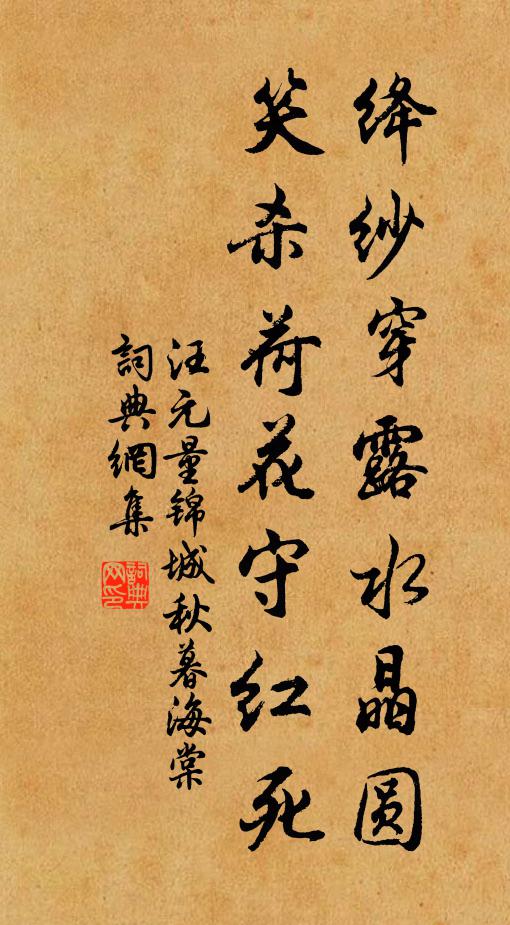 绛纱穿露水晶圆
笑杀荷花守红死
汪元量锦城秋暮海棠
詞典網集
詞典網印